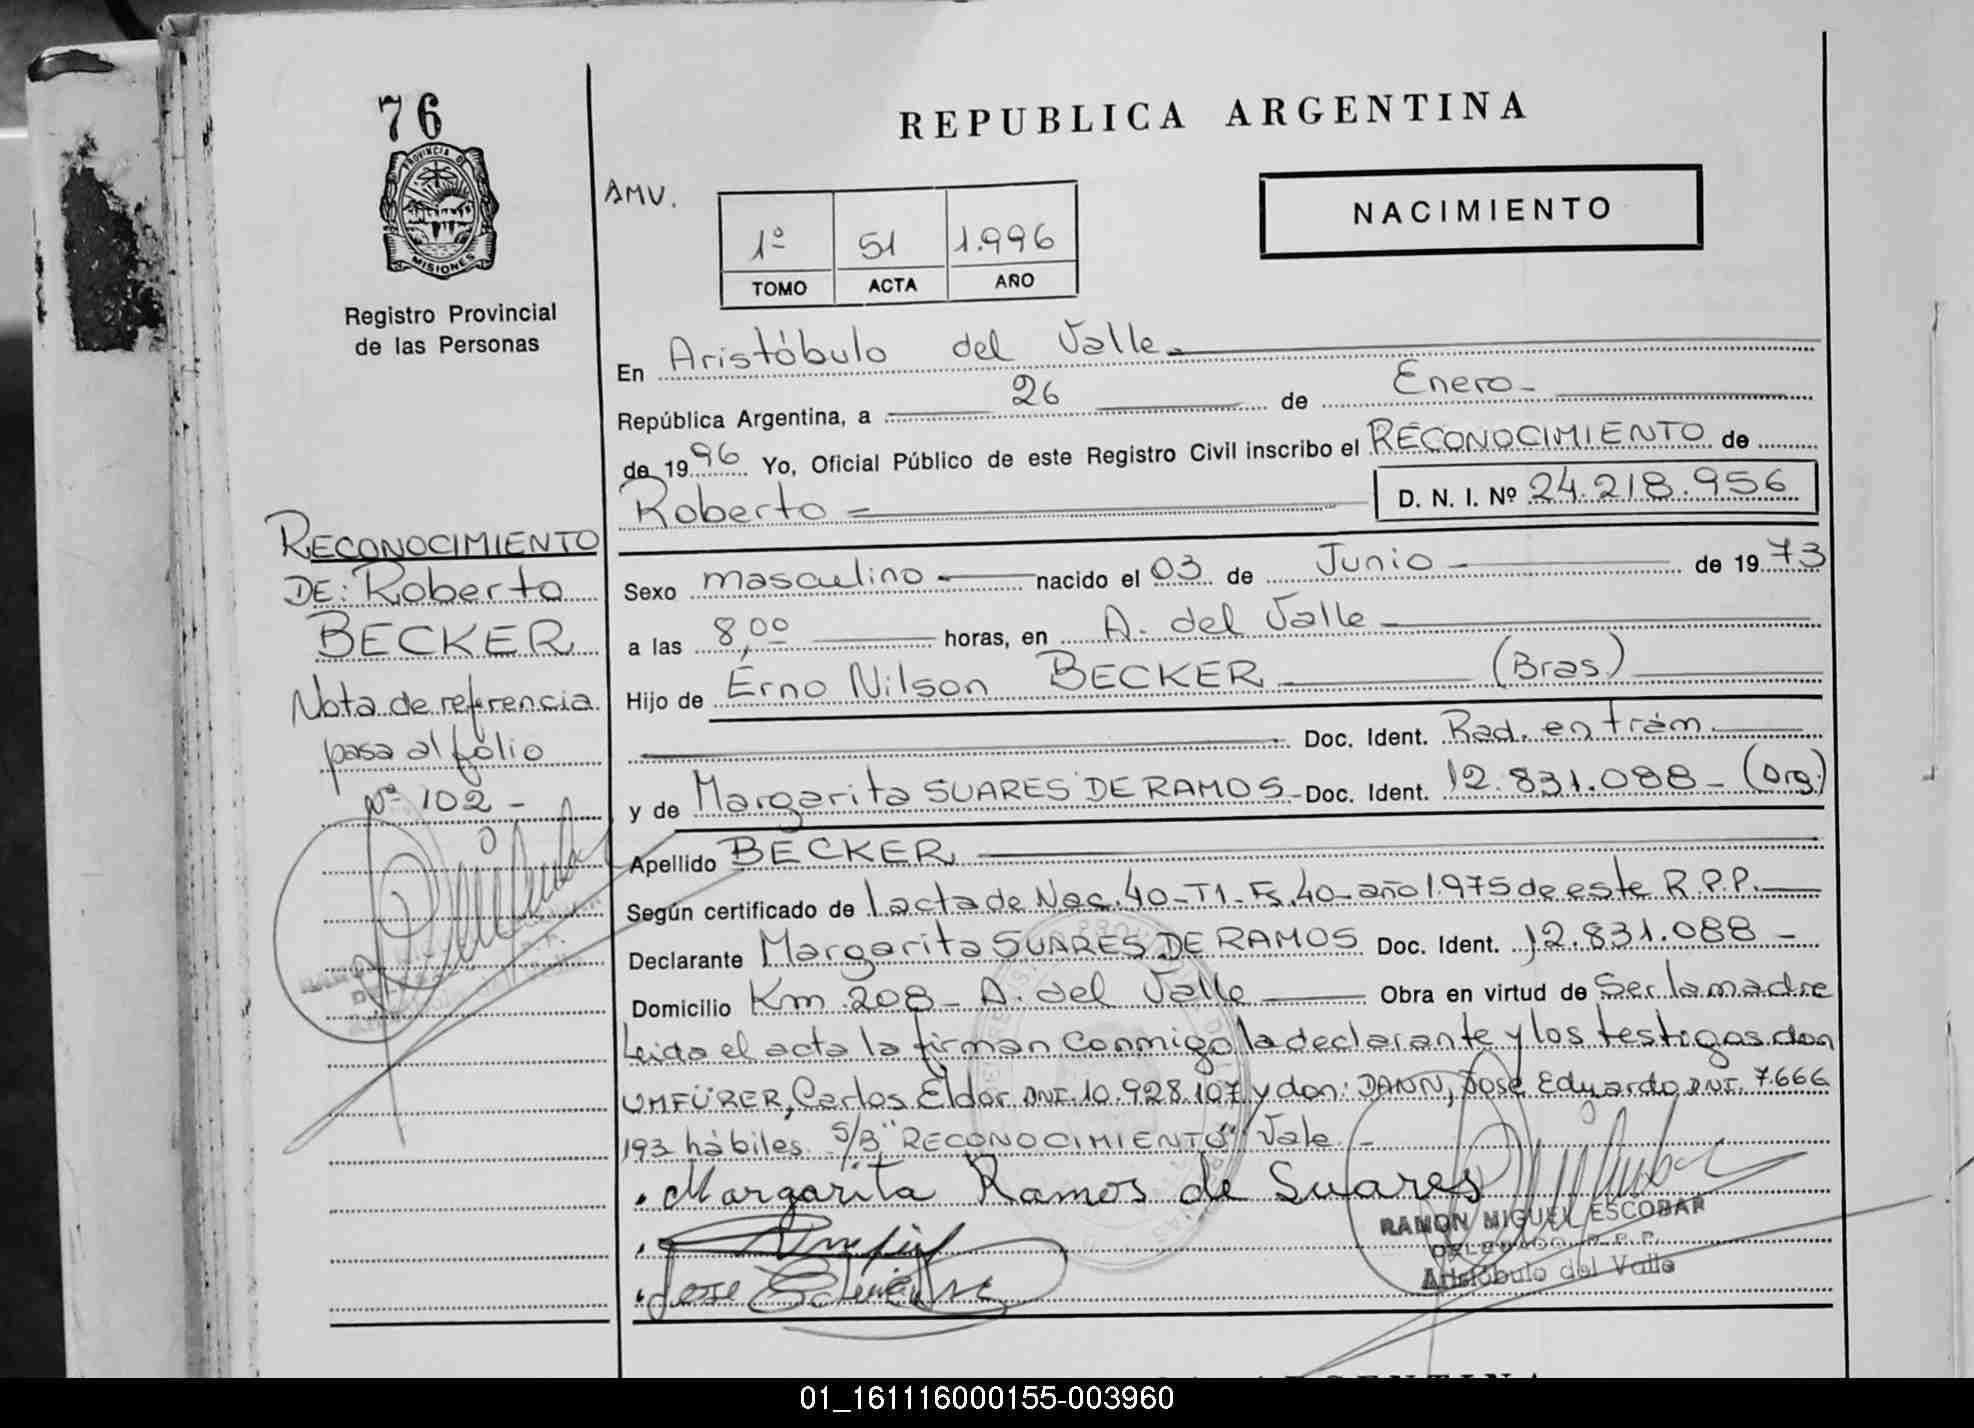 76
PROVINCIA DE
MISIONES
Registro Provincial
de las Personas
RECONOCIMIENTO
DE: Roberto
BECKER
Nota de referencia
pasa al folio
Nº 102 -
REPUBLICA ARGENTINA
AMV.
NACIMIENTO
1º 51 1.996
TOMO ACTA AÑO
En Aristóbulo del Valle
República Argentina, a 26 de Enero
de 1996 Yo, Oficial Público de este Registro Civil inscribo el RECONOCIMIENTO de
Roberto D. N. I. Nº 24.218.956
Sexo masculino nacido el 03 de Junio de 1973
a las 8,00 horas, en A. del Valle
Hijo de Erno Nilson BECKER (Bras)
Doc. Ident. Rad. en trám.
y de Margarita SUARES DE RAMOS Doc. Ident. 12.831.088 - (Arg.)
Apellido BECKER
Según certificado de 1 acta de Nac. 40-T1-Fs.40-año 1975 de este R.P.P.
Declarante Margarita SUARES DE RAMOS Doc. Ident. 12.831.088 -
Domicilio Km 208 - A. del Valle Obra en virtud de Ser la madre
Leida el acta la firman conmigo la declarante y los testigos don
UMFÜRER, Carlos Eldor DNI. 10.928.107 y don: DANN, José Eduardo DNI. 7.666
193 hábiles. S/B "RECONOCIMIENTO" Vale. -
Margarita Ramos de Suares
RAMON MIGUEL ESCOBAR
DELEGADO R.P.P.
Aristóbulo del Valle
REPUBLICA ARGENTINA
01_161116000155-003960